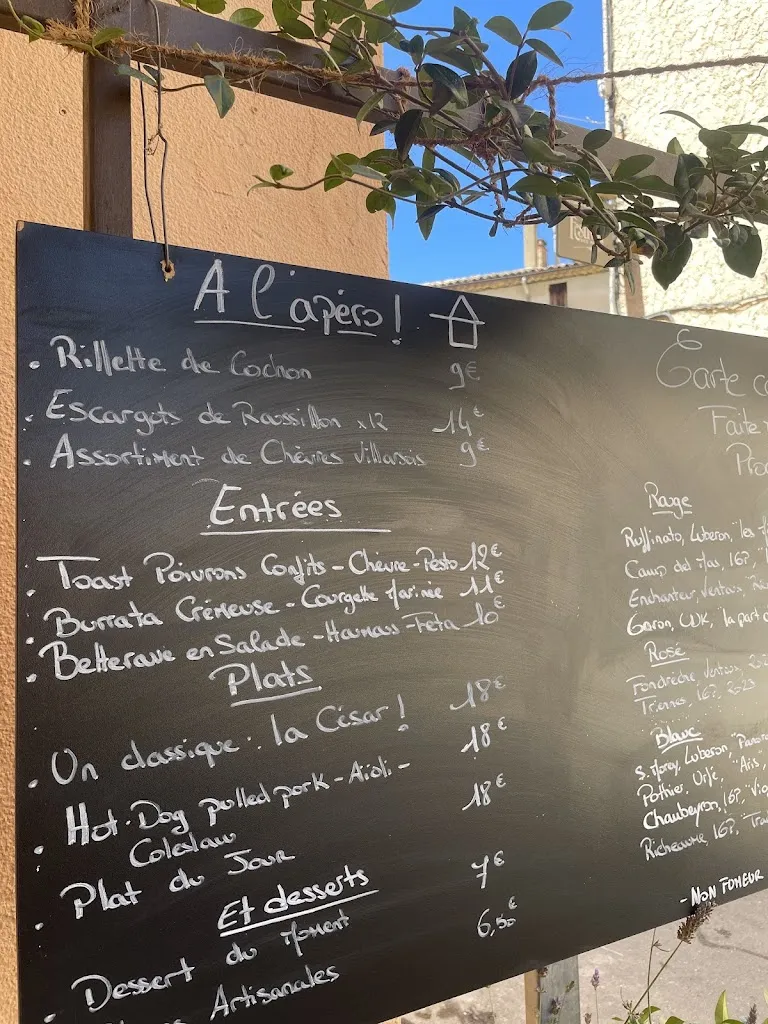 A l'apéro !
• Rillette de Cochon 9€
• Escargots de Roussillon x12 14€
• Assortiment de Chèvres Villarsois 9€
Entrées
• Toast Poivrons Confits - Chèvre - Pesto 12€
• Burrata Crémeuse - Courgette Marinée 11€
• Betterave en Salade - Houmous - Feta 10€
Plats
• Un classique : la César ! 18€
• Hot-Dog pulled pork - Aïoli - 18€
Coleslaw
• Plat du Jour 18€
Et desserts
• Dessert du Moment 7€
Artisanales 6,50€
Carte
Faite
Rouge
Ruffinato, Luberon, "les
Camp del Mas, IGP,
Enchanteur, Ventoux,
Garon, CDR, "la part
Rosé
Fondrèche, Ventoux,
Triennes, IGP, 2023
Blanc
Luberon
"Aris"
Chaubeyron, IGP,
Richeaume, IGP,
- NON FUMEUR